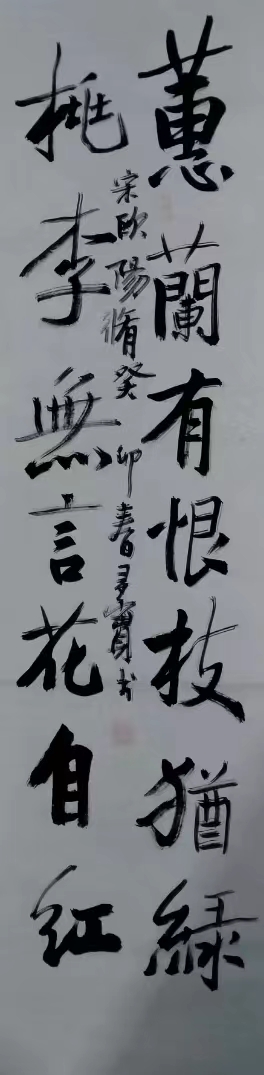 蕙蘭有恨枝猶綠
桃李無言花自紅
宋歐陽脩癸卯春